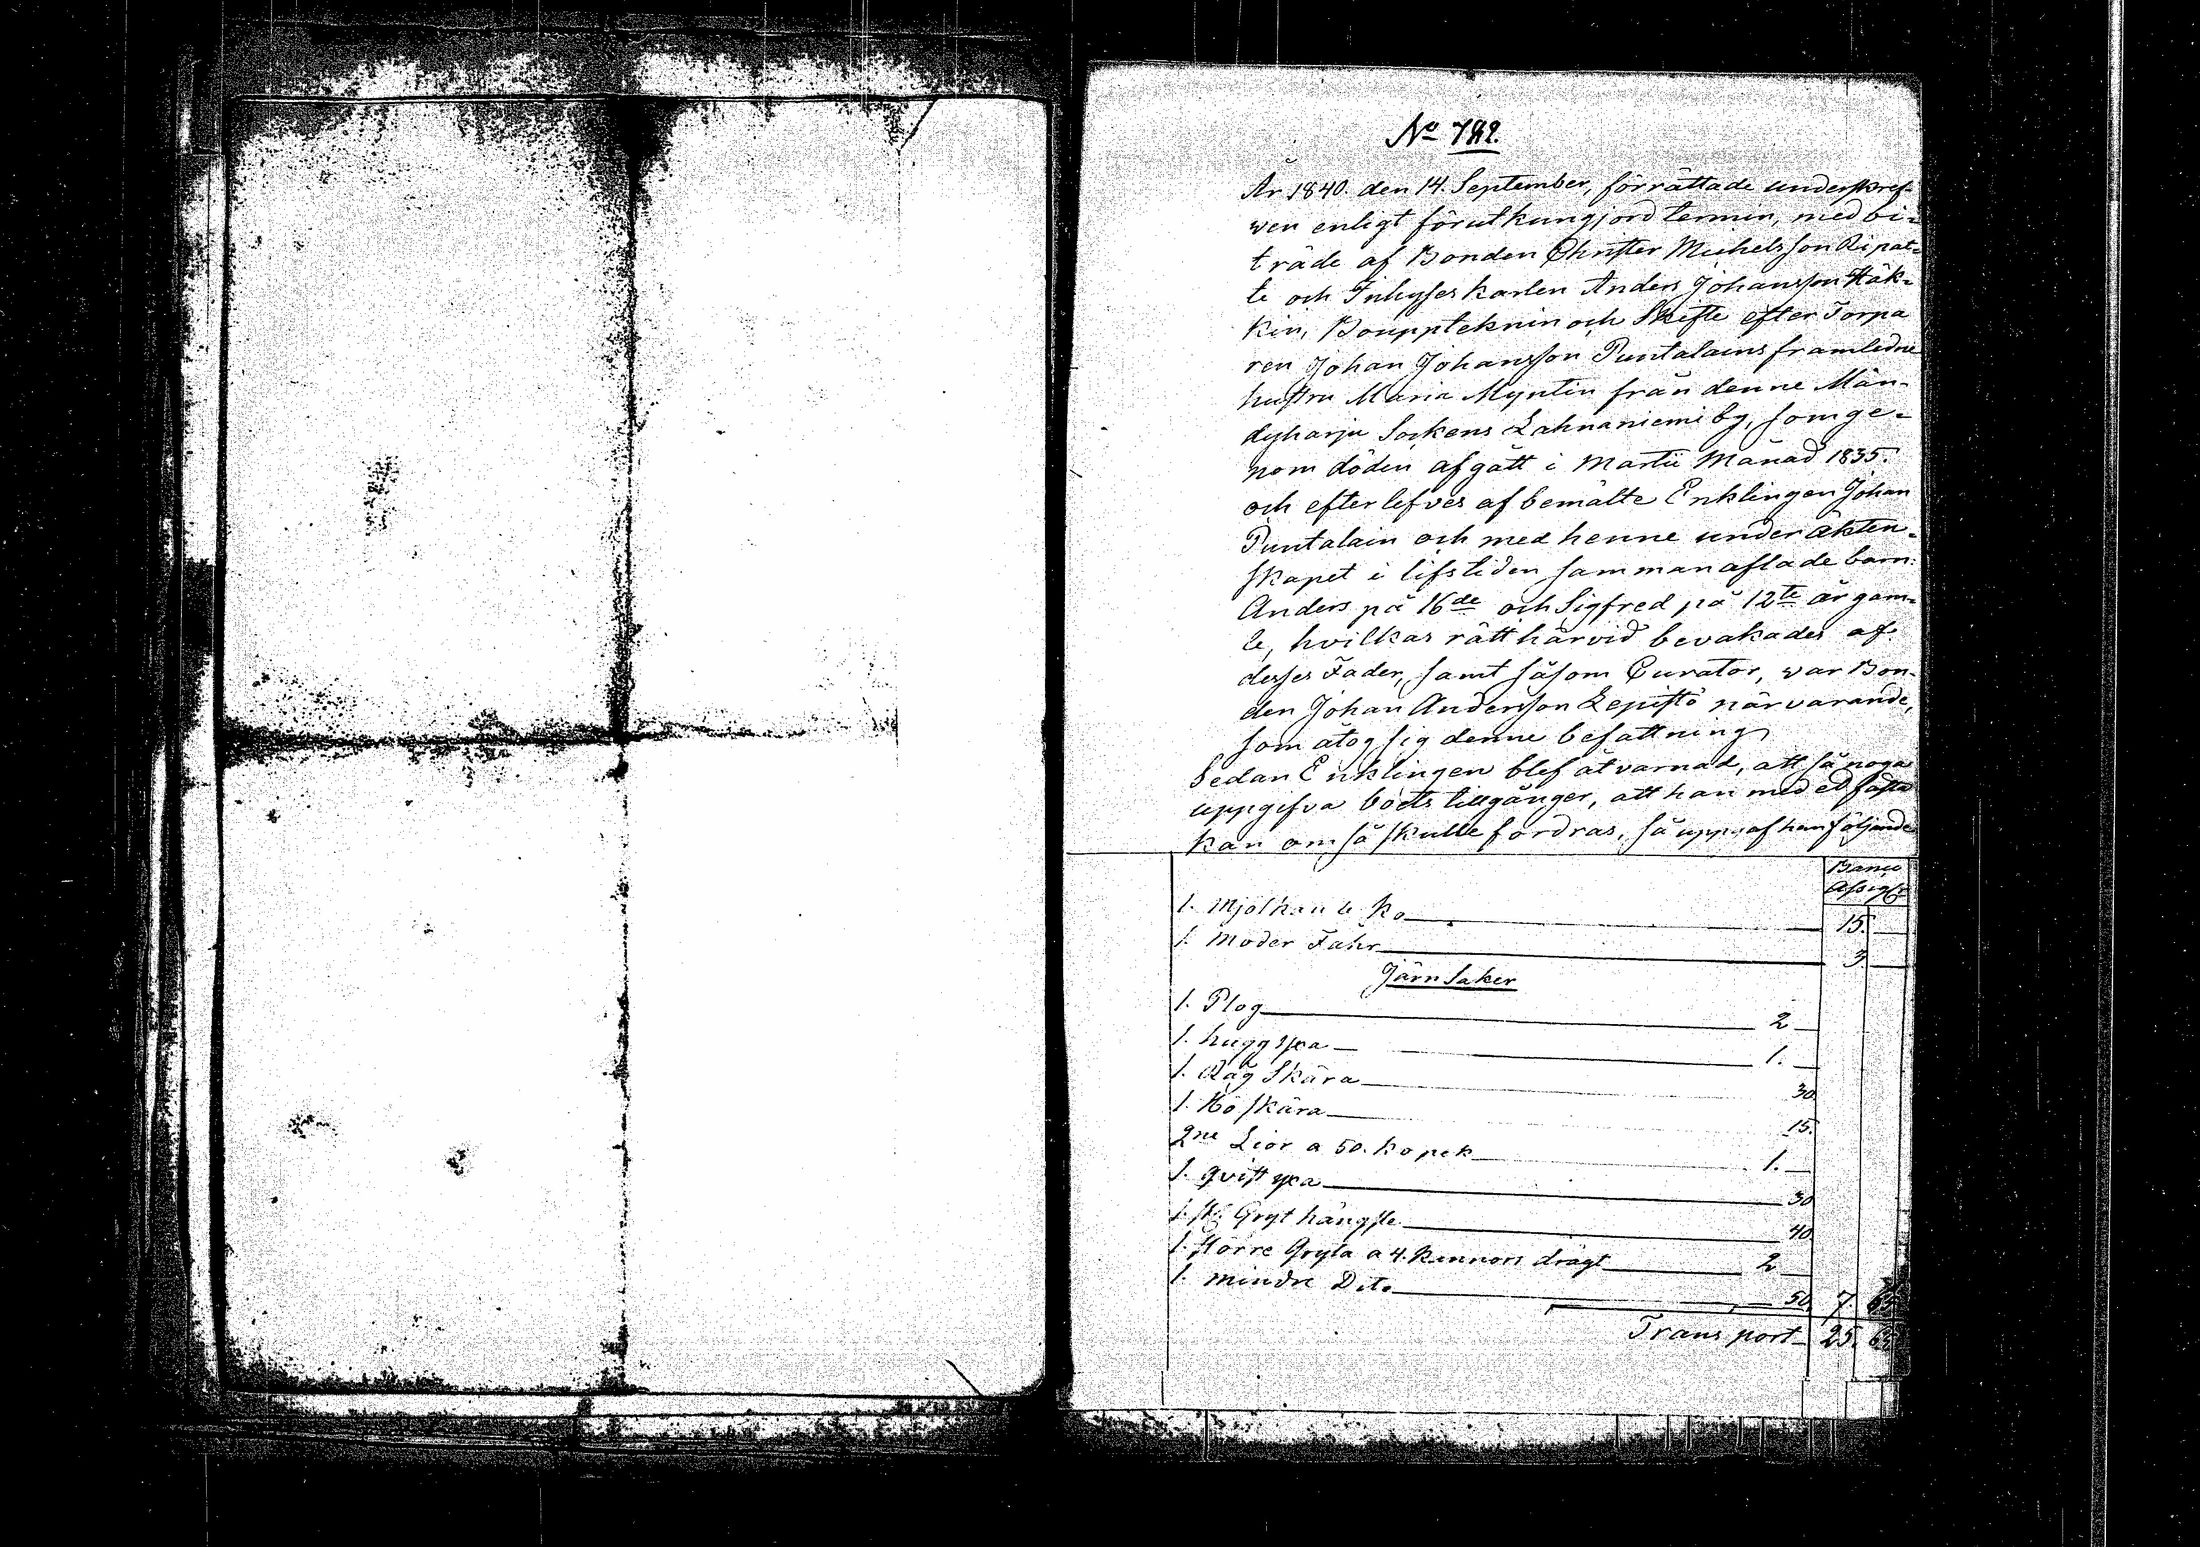 No 782.
År 1840. den 14. September, förrättade underskref-
wen enligt förutkungjord termin, med bi-
träde af Bonden Christer Michelsson Ripat-
te och Inhyses karlen Anders Johansson Häk-
kin, Bouppteknin och Skifte efter Torpa
ren Johan Johansson Puntalains framledne
hustru Maria Myntin från denne Män-
dyharju Sockens Lahnaniemi by, som ge-
nom döden afgått i Martii Månad 1835.
och efterlefves af bemälte Enklingen Johan
Puntalain och med henne under äkten-
skapet i lifstiden sammanaflade barn:
Anders på 16de och Sigfred på 12te år gam-
le, hvilkas rätt härvid bevakades af
desses Fader, samt såsom Curator, war Bon-
den Johan Andersson Lepistö närvarande,
som åtog sig denne befattning
Sedan Enklingen blef åtvarnad, att så noga
uppgifva boets tillgånger, att han med ed fästa
kan om så skulle fordras, så uppgaf han följande
Banco
Assigt:
1. Mjölkande Ko 15.
1. Moder Fåhr 3
Järn Saker
1. Plog 2
1. hugg yxa 1.
1. Råg Skära 30
1. Hö skära 15.
2ne Lior a 50. kopek 1.
1. qvist yxa 30
1. st: Gryt hängsle 40
1. större Gryta a 4. kannors drägt 2
1. mindre Dito 50 7. 65
Transport 25. 65